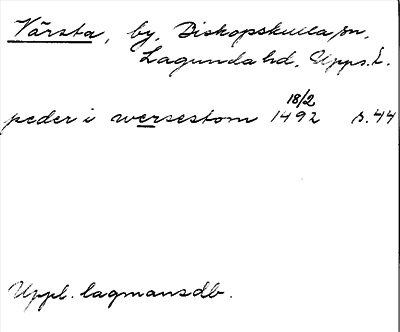 Värsta, by, Biskopskulla sn,
Lagunda hd, Upps. l.
18/2
peder i wersestom 1492 s. 44
Uppl. lagmansdb.